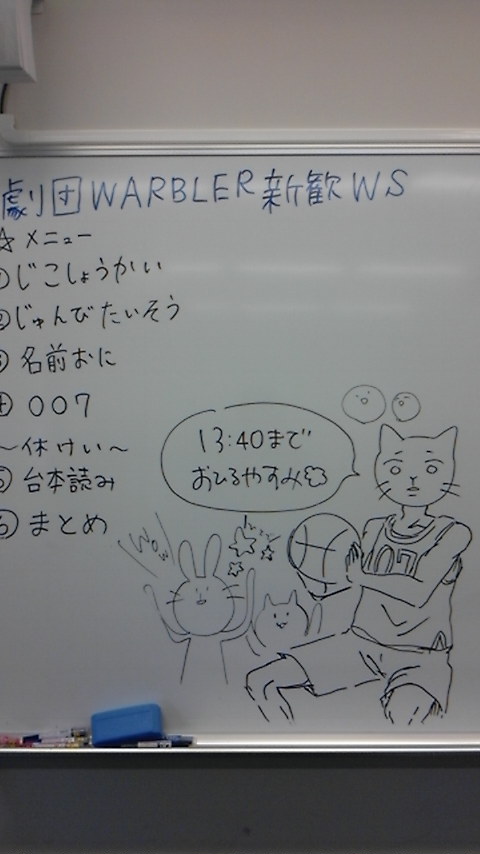 劇団WARBLER新歓WS
☆メニュー
①じこしょうかい
②じゅんびたいそう
③名前おに
④007
～休けい～
⑤台本読み
⑥まとめ
13:40まで
おひるやすみ
WoW
07